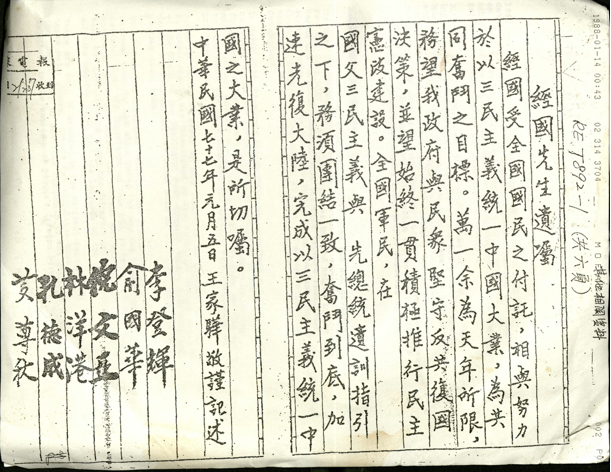 1988-01-14 00:43 02 314 3704
RE.T892-1 (共六頁)
經國先生遺囑
經國受全國國民之付託,相與努力
於以三民主義統一中國大業,為共
同奮鬥之目標。萬一余為天年所限,
務望我政府與民眾堅守反共復國
決策,並望始終一貫積極推行民主
憲政建設。全國軍民,在
國父三民主義與 先總統遺訓指引
之下,務須團結一致,奮鬥到底,加
速光復大陸,完成以三民主義統一中
國之大業,是所切囑。
中華民國七十七年元月五日 王家驊敬謹記述
李登輝
俞國華
倪文亞
林洋港
孔德成
黃尊秋
電報